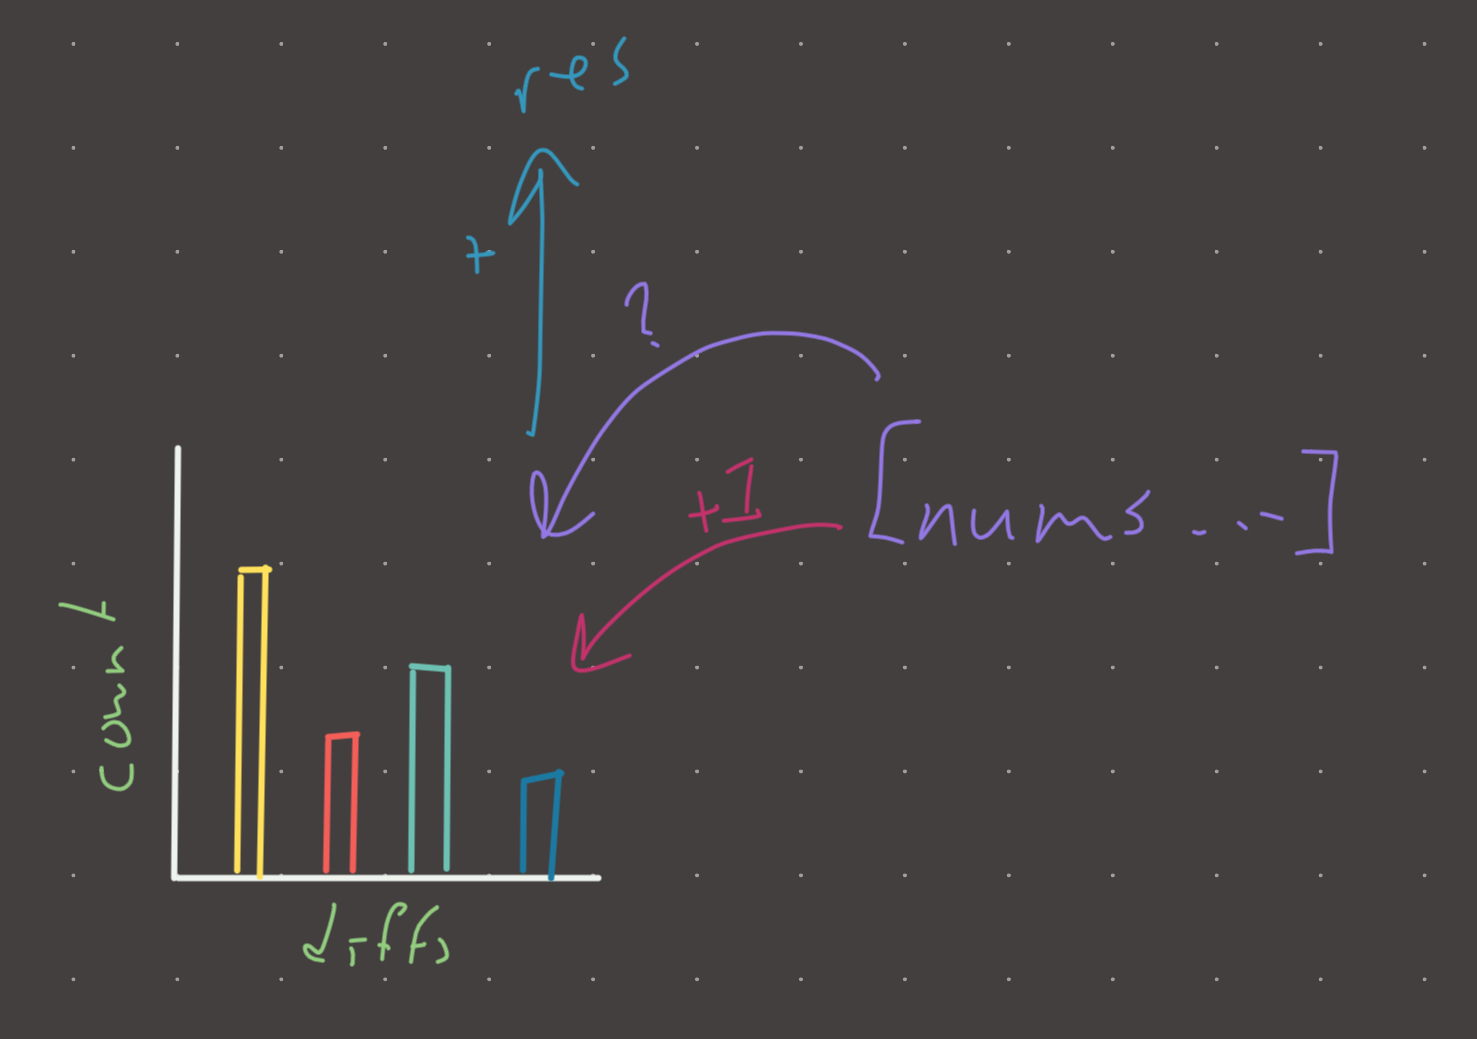 res
+
?
+1
[nums ...]
count
diffs